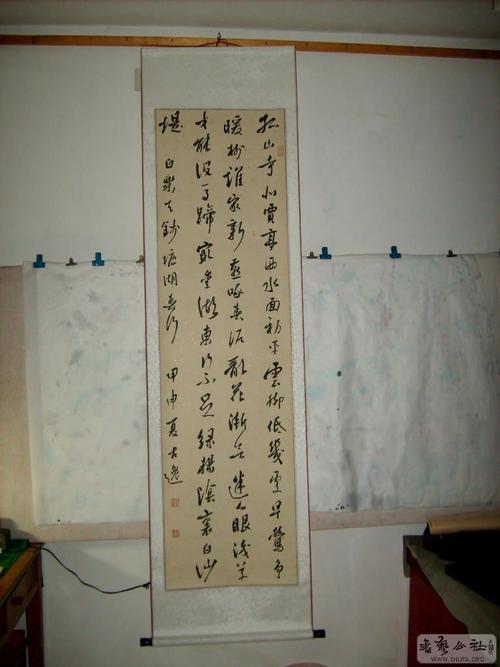 孤山寺北賈亭西水面初平雲腳低幾處早鶯爭
暖樹誰家新燕啄春泥亂花漸欲迷人眼淺草
才能沒馬蹄最愛湖東行不足綠楊陰裏白沙
堤 白樂天錢塘湖春行 甲申夏 逸
書藝公社
WWW.SHUFA.ORG